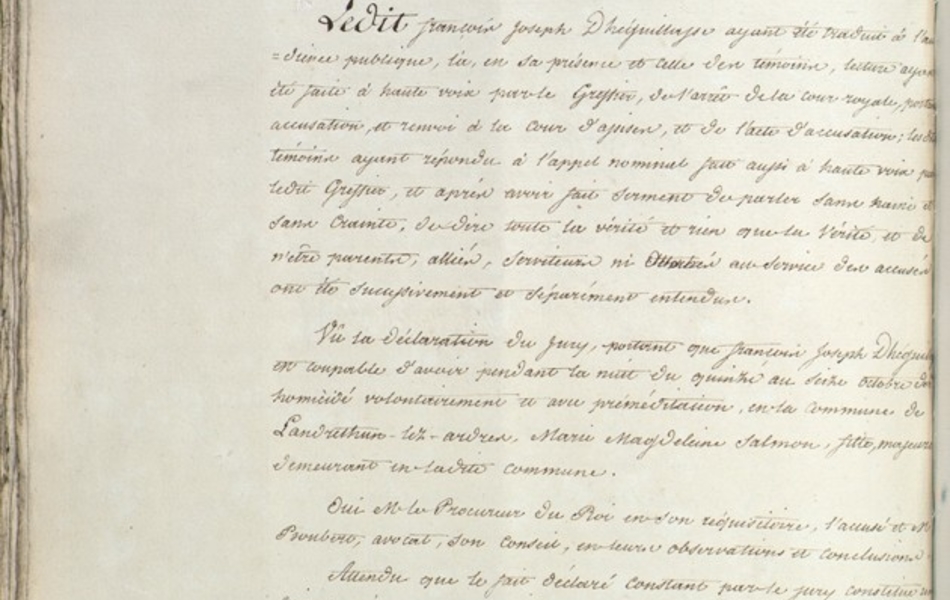 Ledit françois Joseph Dhéguillage ayant été traduit à l'au
=dience publique, là, en sa présence et celle des témoins, lecture ayant
été faite à haute voix par le Greffier, de l'arrêt de la cour royale, portant
accusation, et renvoi à la Cour d'assises, et de l'acte d'accusation; lesdits
témoins ayant répondu à l'appel nominal fait aussi à haute voix par
ledit Greffier, et après avoir fait serment de parler sans haine et
sans crainte, de dire toute la vérité et rien que la Vérité, et de
n'être parents, alliés, serviteurs ni au service des accusés
ont été successivement et séparément entendus.
Vû la déclaration du Jury, portant que françois Joseph Dhéguil
est coupable d'avoir pendant la nuit du quinze au seize octobre
homicidé volontairement et avec préméditation, en la commune de
Landrethun-lez-ardres, Marie Magdeleine Salmon, fille, majeure
demeurant en ladite commune.
Oui Mr le Procureur du Roi en son réquisitoire, l'accusé et Me
avocat, son Conseil, en leurs observations et conclusions.
Attendu que le fait déclaré constant par le jury constitue